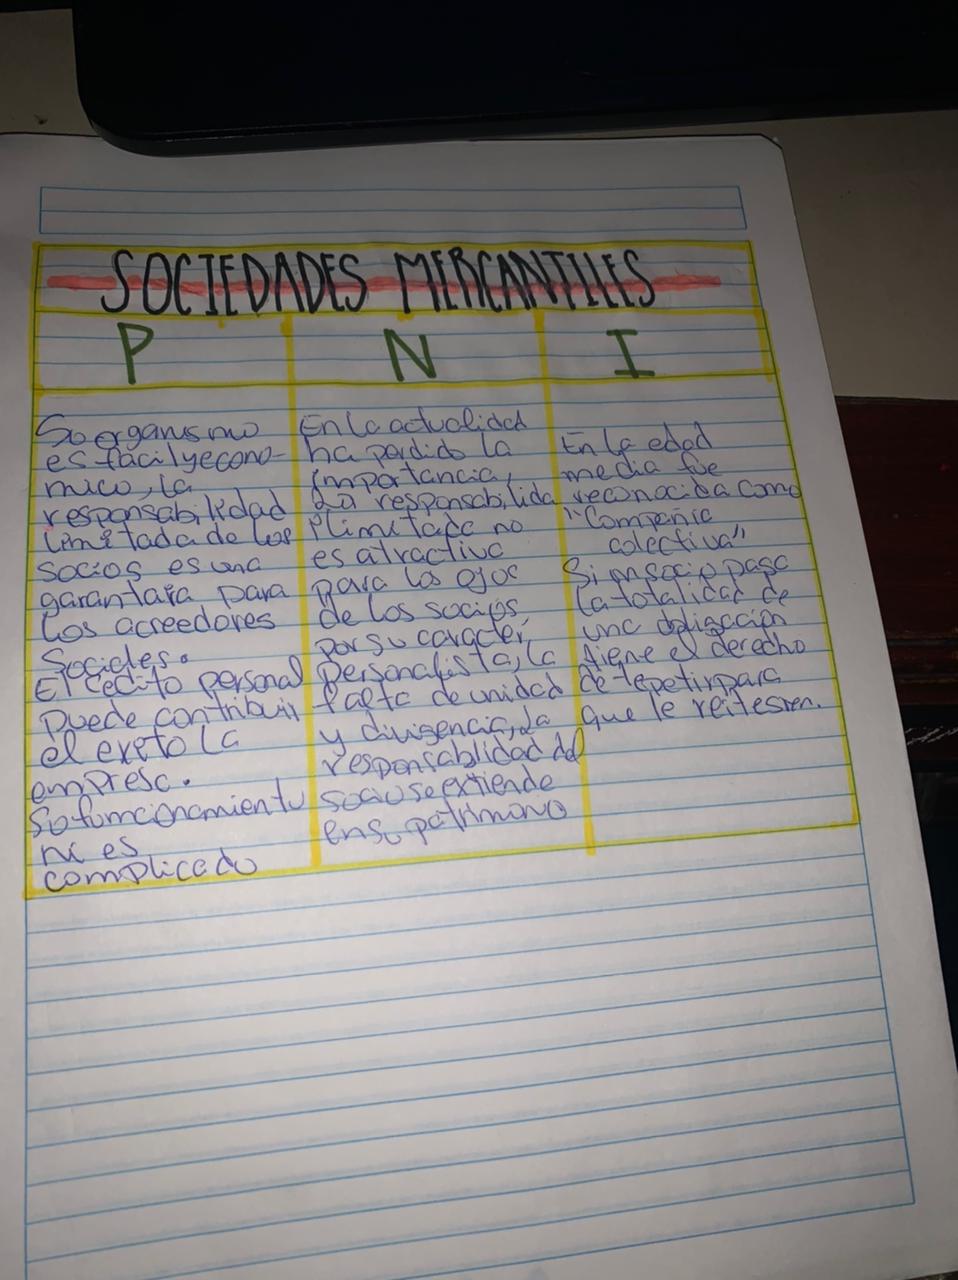 SOCIEDADES MERCANTILES
P
N
I
So organismo
es facil y econo-
mico, la
responsabilidad
limitada de los
socios es una
garantaia para
los acreedores
Sociales.
El cedito personal
puede contribuir
el exeto la
empresa.
So funcionamiento
no es
complicado
En la actualidad
ha perdido la
importancia,
La responsabilida
limitada no
es atractiva
para los ojos
de los socios,
por su caracter
personalista, la
falta de unidad
y divigencia, la
responsablidad del
socio se extiende
en su patrimono
En la edad
media fue
reconocida como
"Compañia
colectiva"
Si un socio paga
la totalidad de
una obligación
tiene el derecho
de tepetir para
que le reitesren.